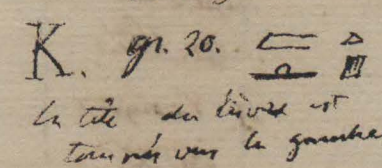 K. gr. 20.
la tête du lièvre est
tournée vers la gauche